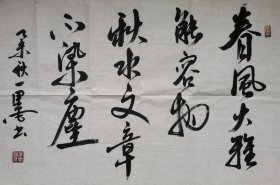 春風大雅
能容物
秋水文章
不染塵
乙未秋一墨書